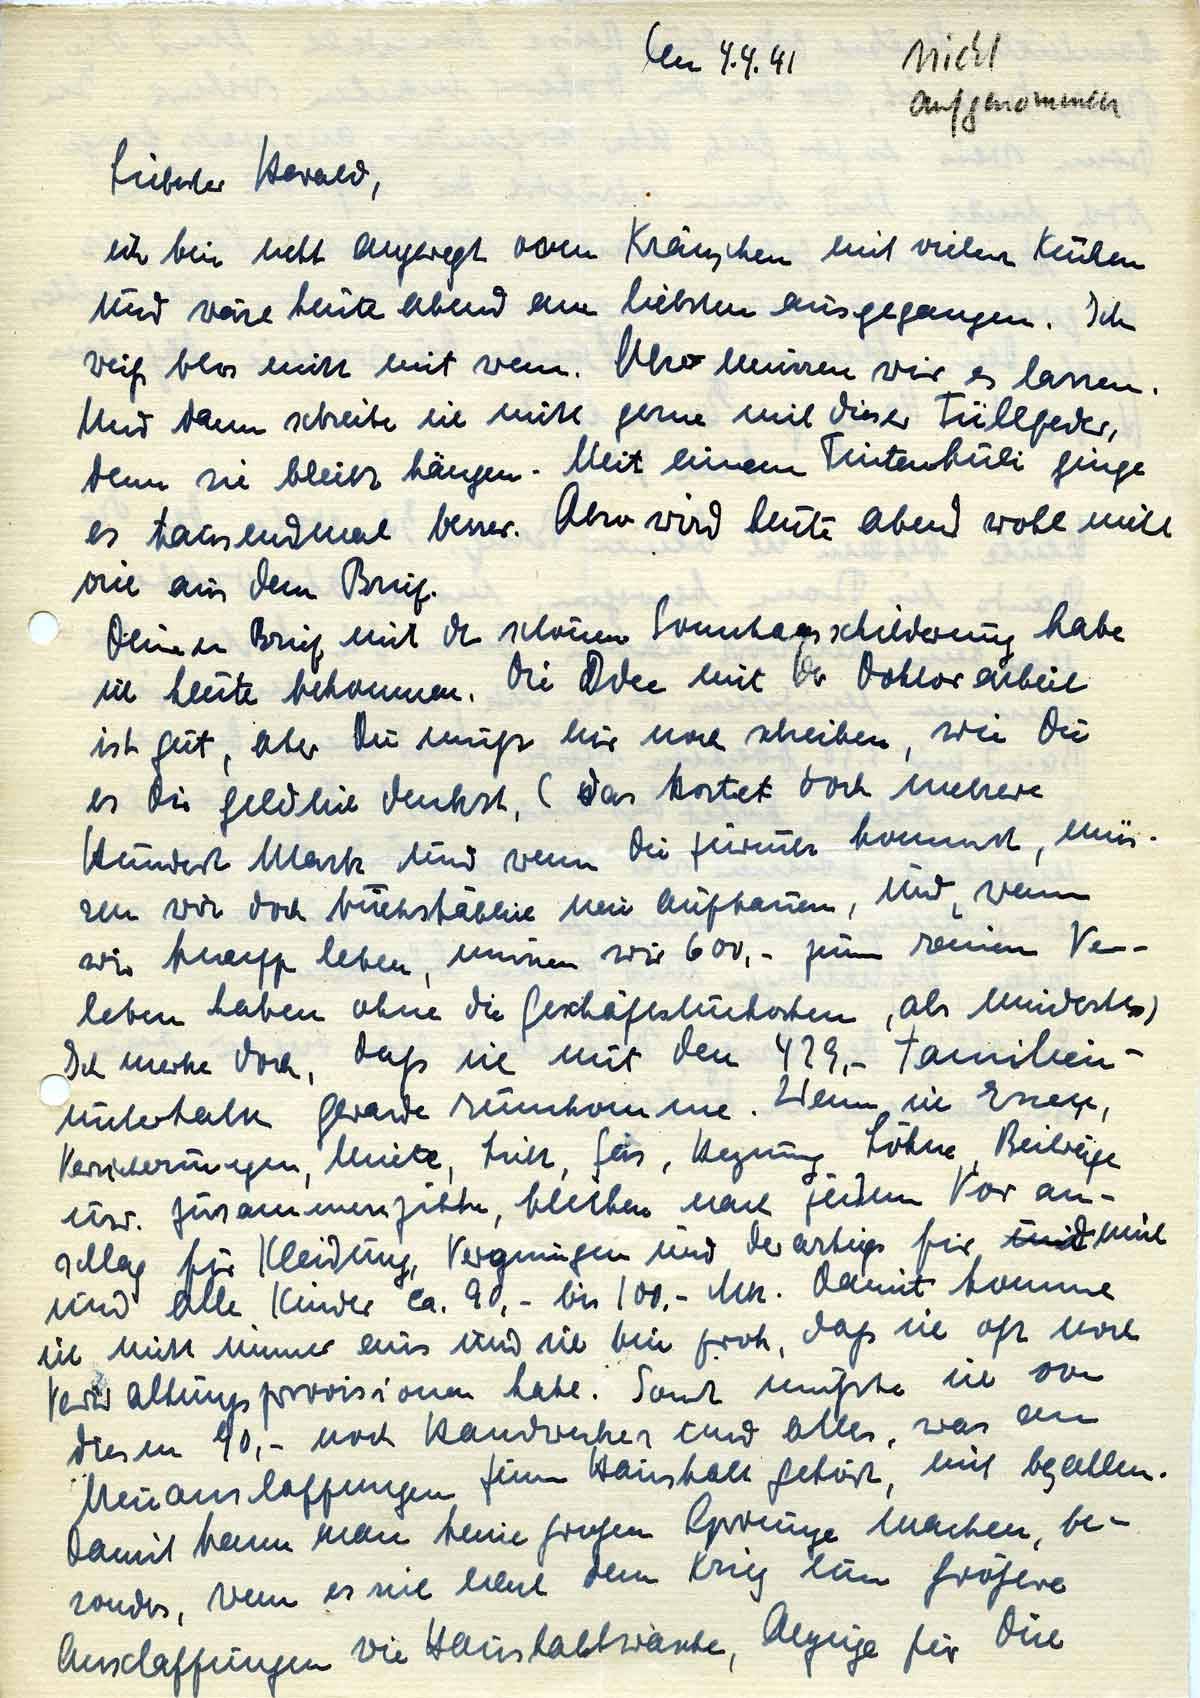 den 4.4.41
nicht
aufgenommen
Liebster Harald,
ich bin recht angeregt vom Kränzchen mit vielen Kuchen
und wäre heute abend am liebsten ausgegangen. Ich
weiß blos nicht mit wem. Also müssen wir es lassen.
Und dann schreibe ich nicht gerne mit dieser Füllfeder,
denn sie bleibt hängen. Mit einem Tintenkuli ginge
es tausendmal besser. Also wird heute abend wohl nicht
viel aus dem Brief.
Deinen Brief mit der schönen Sonntagsschilderung habe
ich heute bekommen. Die Idee mit der Doktorarbeit
ist gut, aber Du mußt mir noch schreiben, wie Du
es Dir geldlich denkst, (das kostet doch mehrere
Hundert Mark und wenn Du zurück kommst, müs-
sen wir doch buchstäblich neu aufbauen, und, wenn
wir knapp leben, müssen wir 600,- zum reinen Ver-
leben haben ohne die Geschäftsunkosten, als mindestes)
Ich merke doch, daß ich mit den 479,- Familien-
unterhalt gerade rumkomme. Wenn ich Essen,
Versicherungen, Miete, Licht, Gas, Heizung Löhne, Beiträge
usw. zusammenzähle, bleiben nach jedem Voran-
schlag für Kleidung, Vergnügen und derartiges für mich
und alle Kinder ca. 90,- bis 100,- Mk. Damit komme
ich nicht immer aus und ich bin froh, daß ich oft noch
Verwaltungsprovisionen habe. Sonst müßte ich von
diesen 90,- noch Handwerker und alles, was an
Neuanschaffungen zum Haushalt gehört, mit bezahlen.
Damit kann man keine großen Sprünge machen, be-
sonders, wenn es sich nach dem Krieg um größere
Anschaffungen wie Haushaltswäsche, Anzüge für Dich